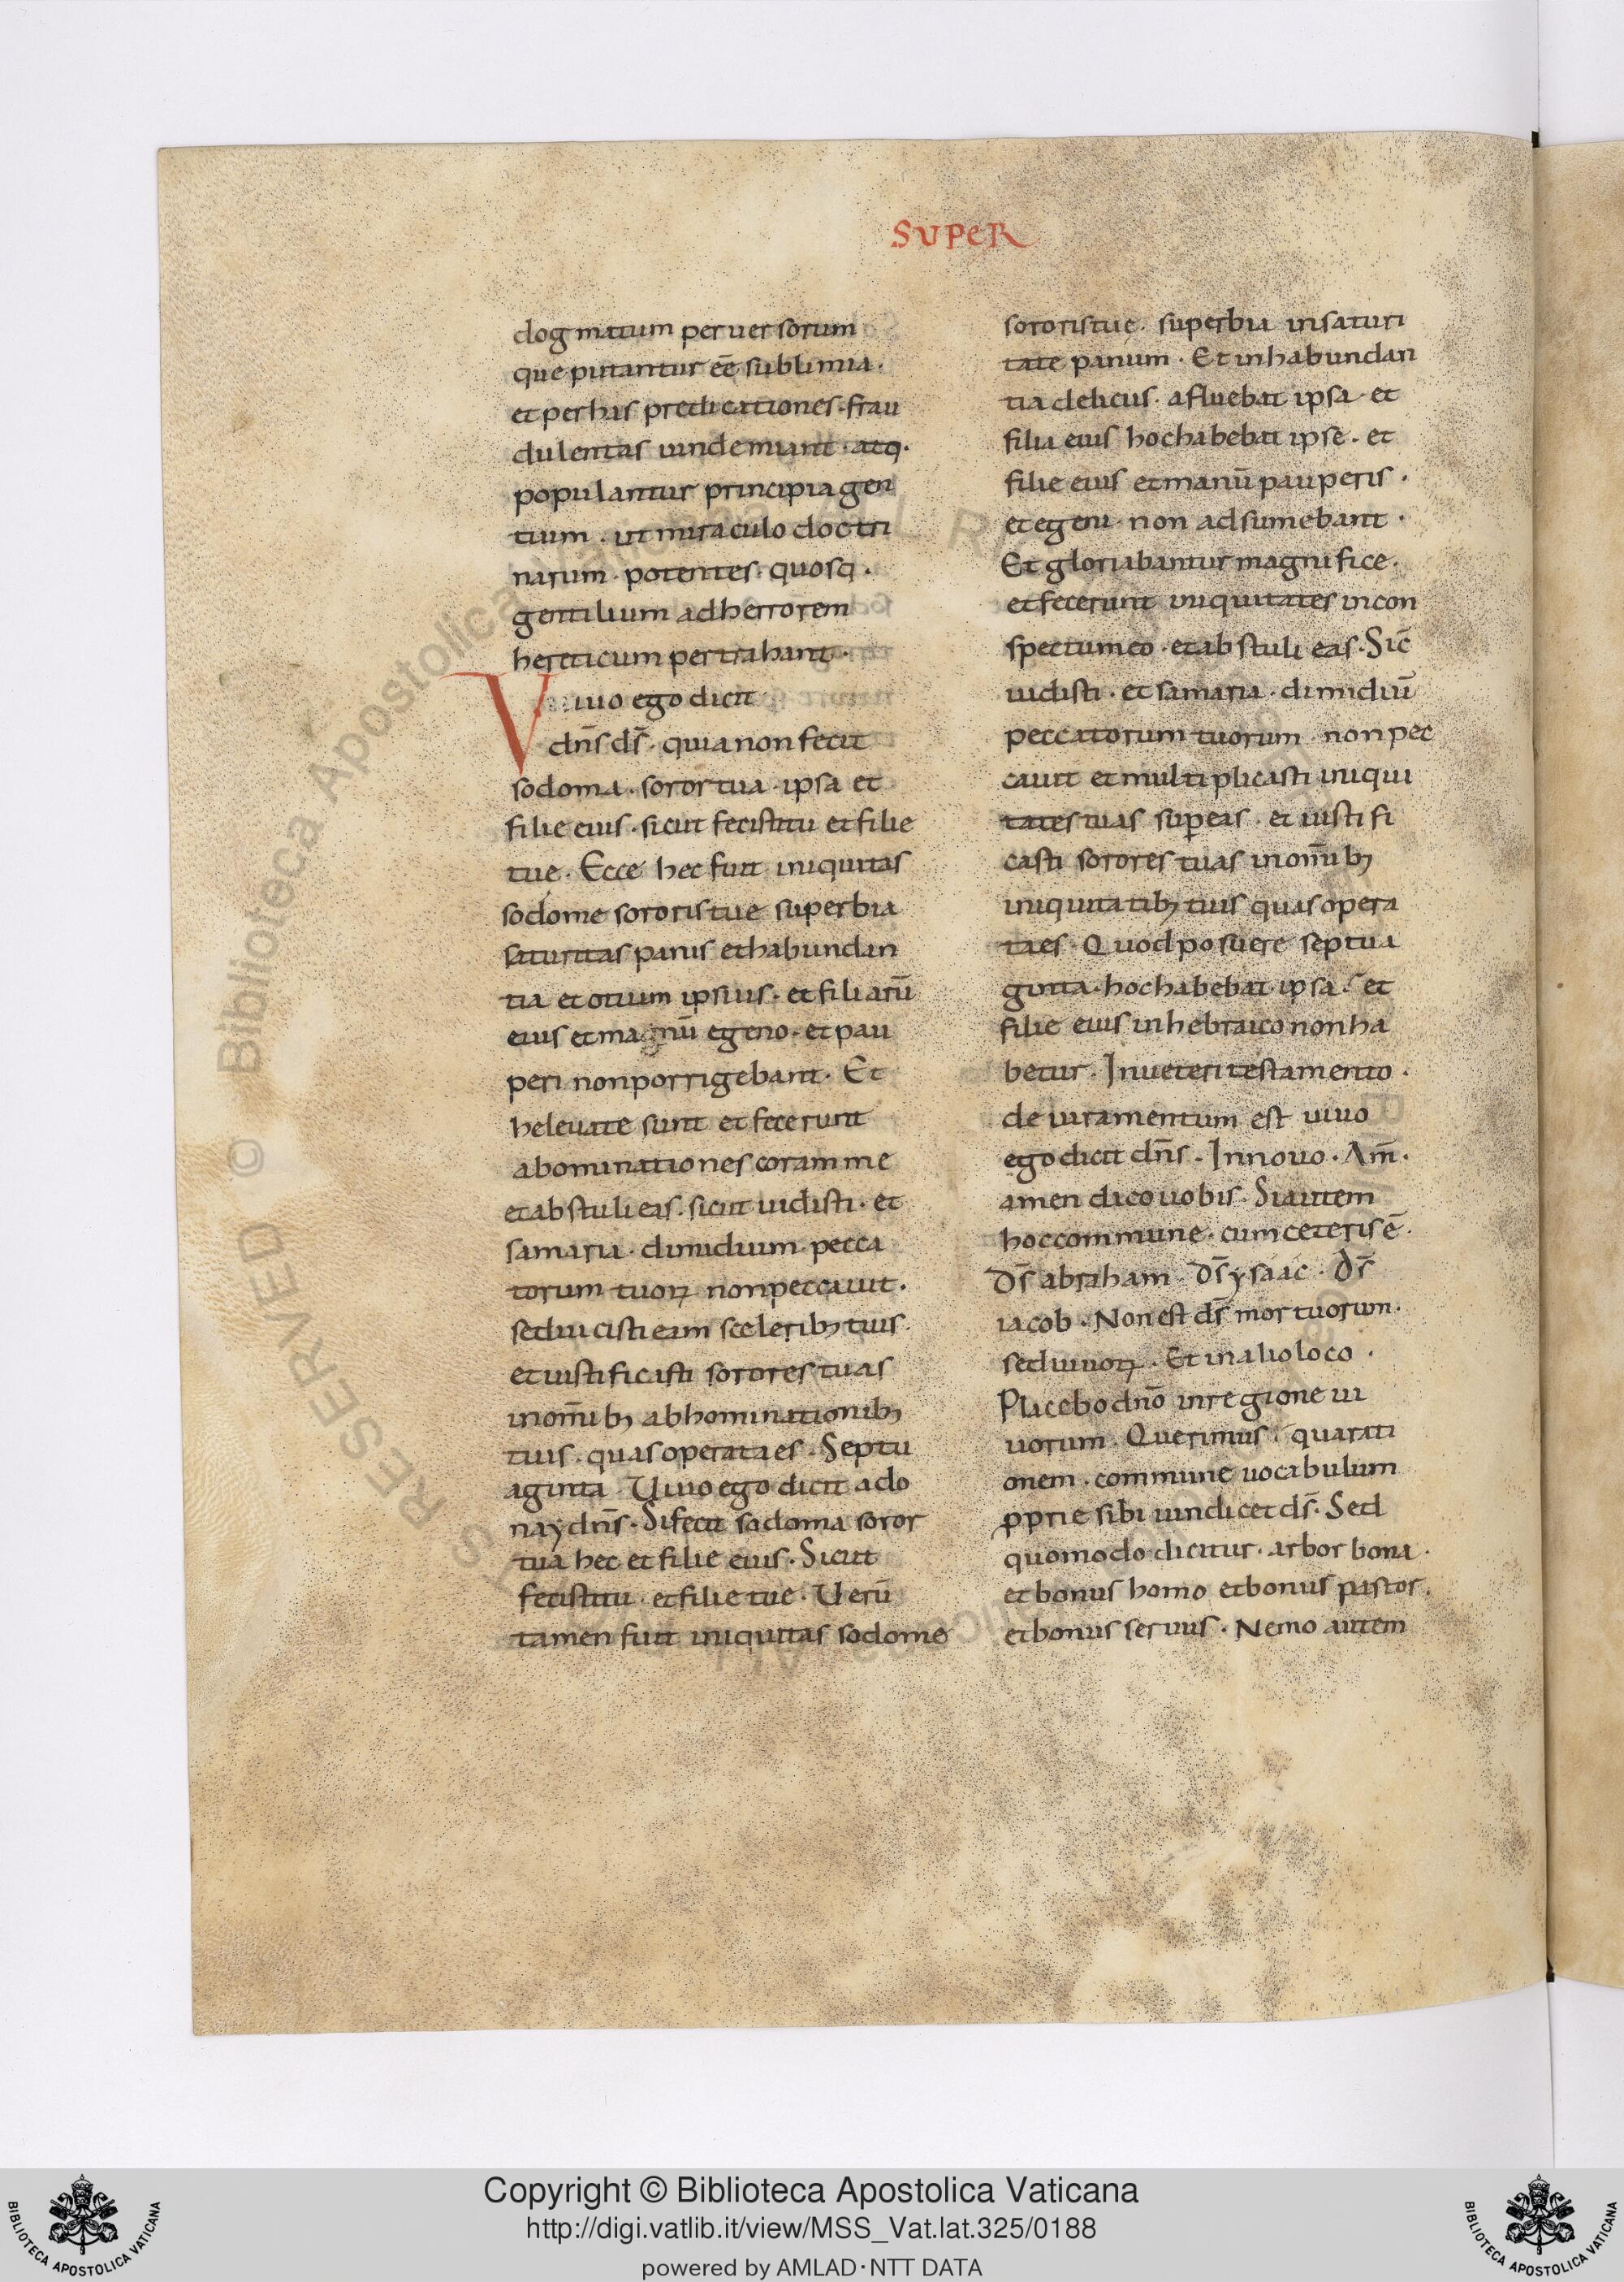 SUPER
dogmatum peruersorum
que putantur eē sublimia·
et per has predicationes·frau
dulentas uindemiant·atq·
populantur principia gen
tium·ut miraculo doctri
narum·potentes·quosq·
gentilium adherrorem
hereticum pertrahant·
Viuo ego dicit
dn̄s ds̄·quia non fecit
sodoma·soror tua·ipsa et
filie eius·sicut fecisti tu et filie
tuę·Ecce hec fuit iniquitas
sodome sororis tue superbia
saturitas panis et habundan
tia et otium ipsius·et filiarū
eius et manū egeno·et pau
peri non porrigebant·Et
heleuate sunt et fecerunt
abominationes coram me
et abstuli eas·sicut uidisti·et
samaria·dimidium·pecca
torum tuoꝝ non peccauit·
sed uicisti eam sceleribꝫ tuis·
et iustificasti sorores tuas
in om̄ibꝫ abhominationibꝫ
tuis·quas operata es·Septu
aginta·Uiuo ego dicit ado
nay dn̄s·Si fecit sodoma soror
tua hec et filie eius·Sicut
fecisti tu·et filie tue·Uerū
tamen fuit iniquitas sodome
sororis tuę·superbia in saturi
tate panum·Et in habundan
tia deliciis·afluebat ipsa·et
filia eius hoc habebat ipse·et
filie eius et manū pauperis·
et egeni·non adsumebant·
Et gloriabantur magnifice·
et fecerunt iniquitates in con
spectu meo·et abstuli eas·Sic̄
uidisti·et samaria·dimidiū
peccatorum tuorum·non pec
cauit et multiplicasti iniqui
tates tuas super eas·et iustifi
casti sorores tuas in om̄ibꝫ
iniquitatibꝫ tuis quas opera
ta es·Quod posuere septua
ginta·hoc habebat ipsa·et
filie eius in hebraico non ha
betur·In ueteri testamento·
dei iuramentum est uiuo
ego dicit dn̄s·In nouo·Am̄·
amen dico uobis·Si autem
hoc commune·cum ceteris ē·
Ds̄ abraham·Ds̄ ysaac·Ds̄
iacob·Non est ds̄ mortuorum·
sed uiuoꝝ·Et in alio loco·
Placebo dn̄o in regione ui
uorum·Querimus·quarati
onem·commune uocabulum
ꝓprie sibi uindicet ds̄·Sed
quomodo dicitur·arbor bona·
et bonus homo et bonus pastor·
et bonus seruus·Nemo autem
Copyright © Biblioteca Apostolica Vaticana
http://digi.vatlib.it/view/MSS_Vat.lat.325/0188
powered by AMLAD·NTT DATA
BIBLIOTECA APOSTOLICA VATICANA
BIBLIOTECA APOSTOLICA VATICANA